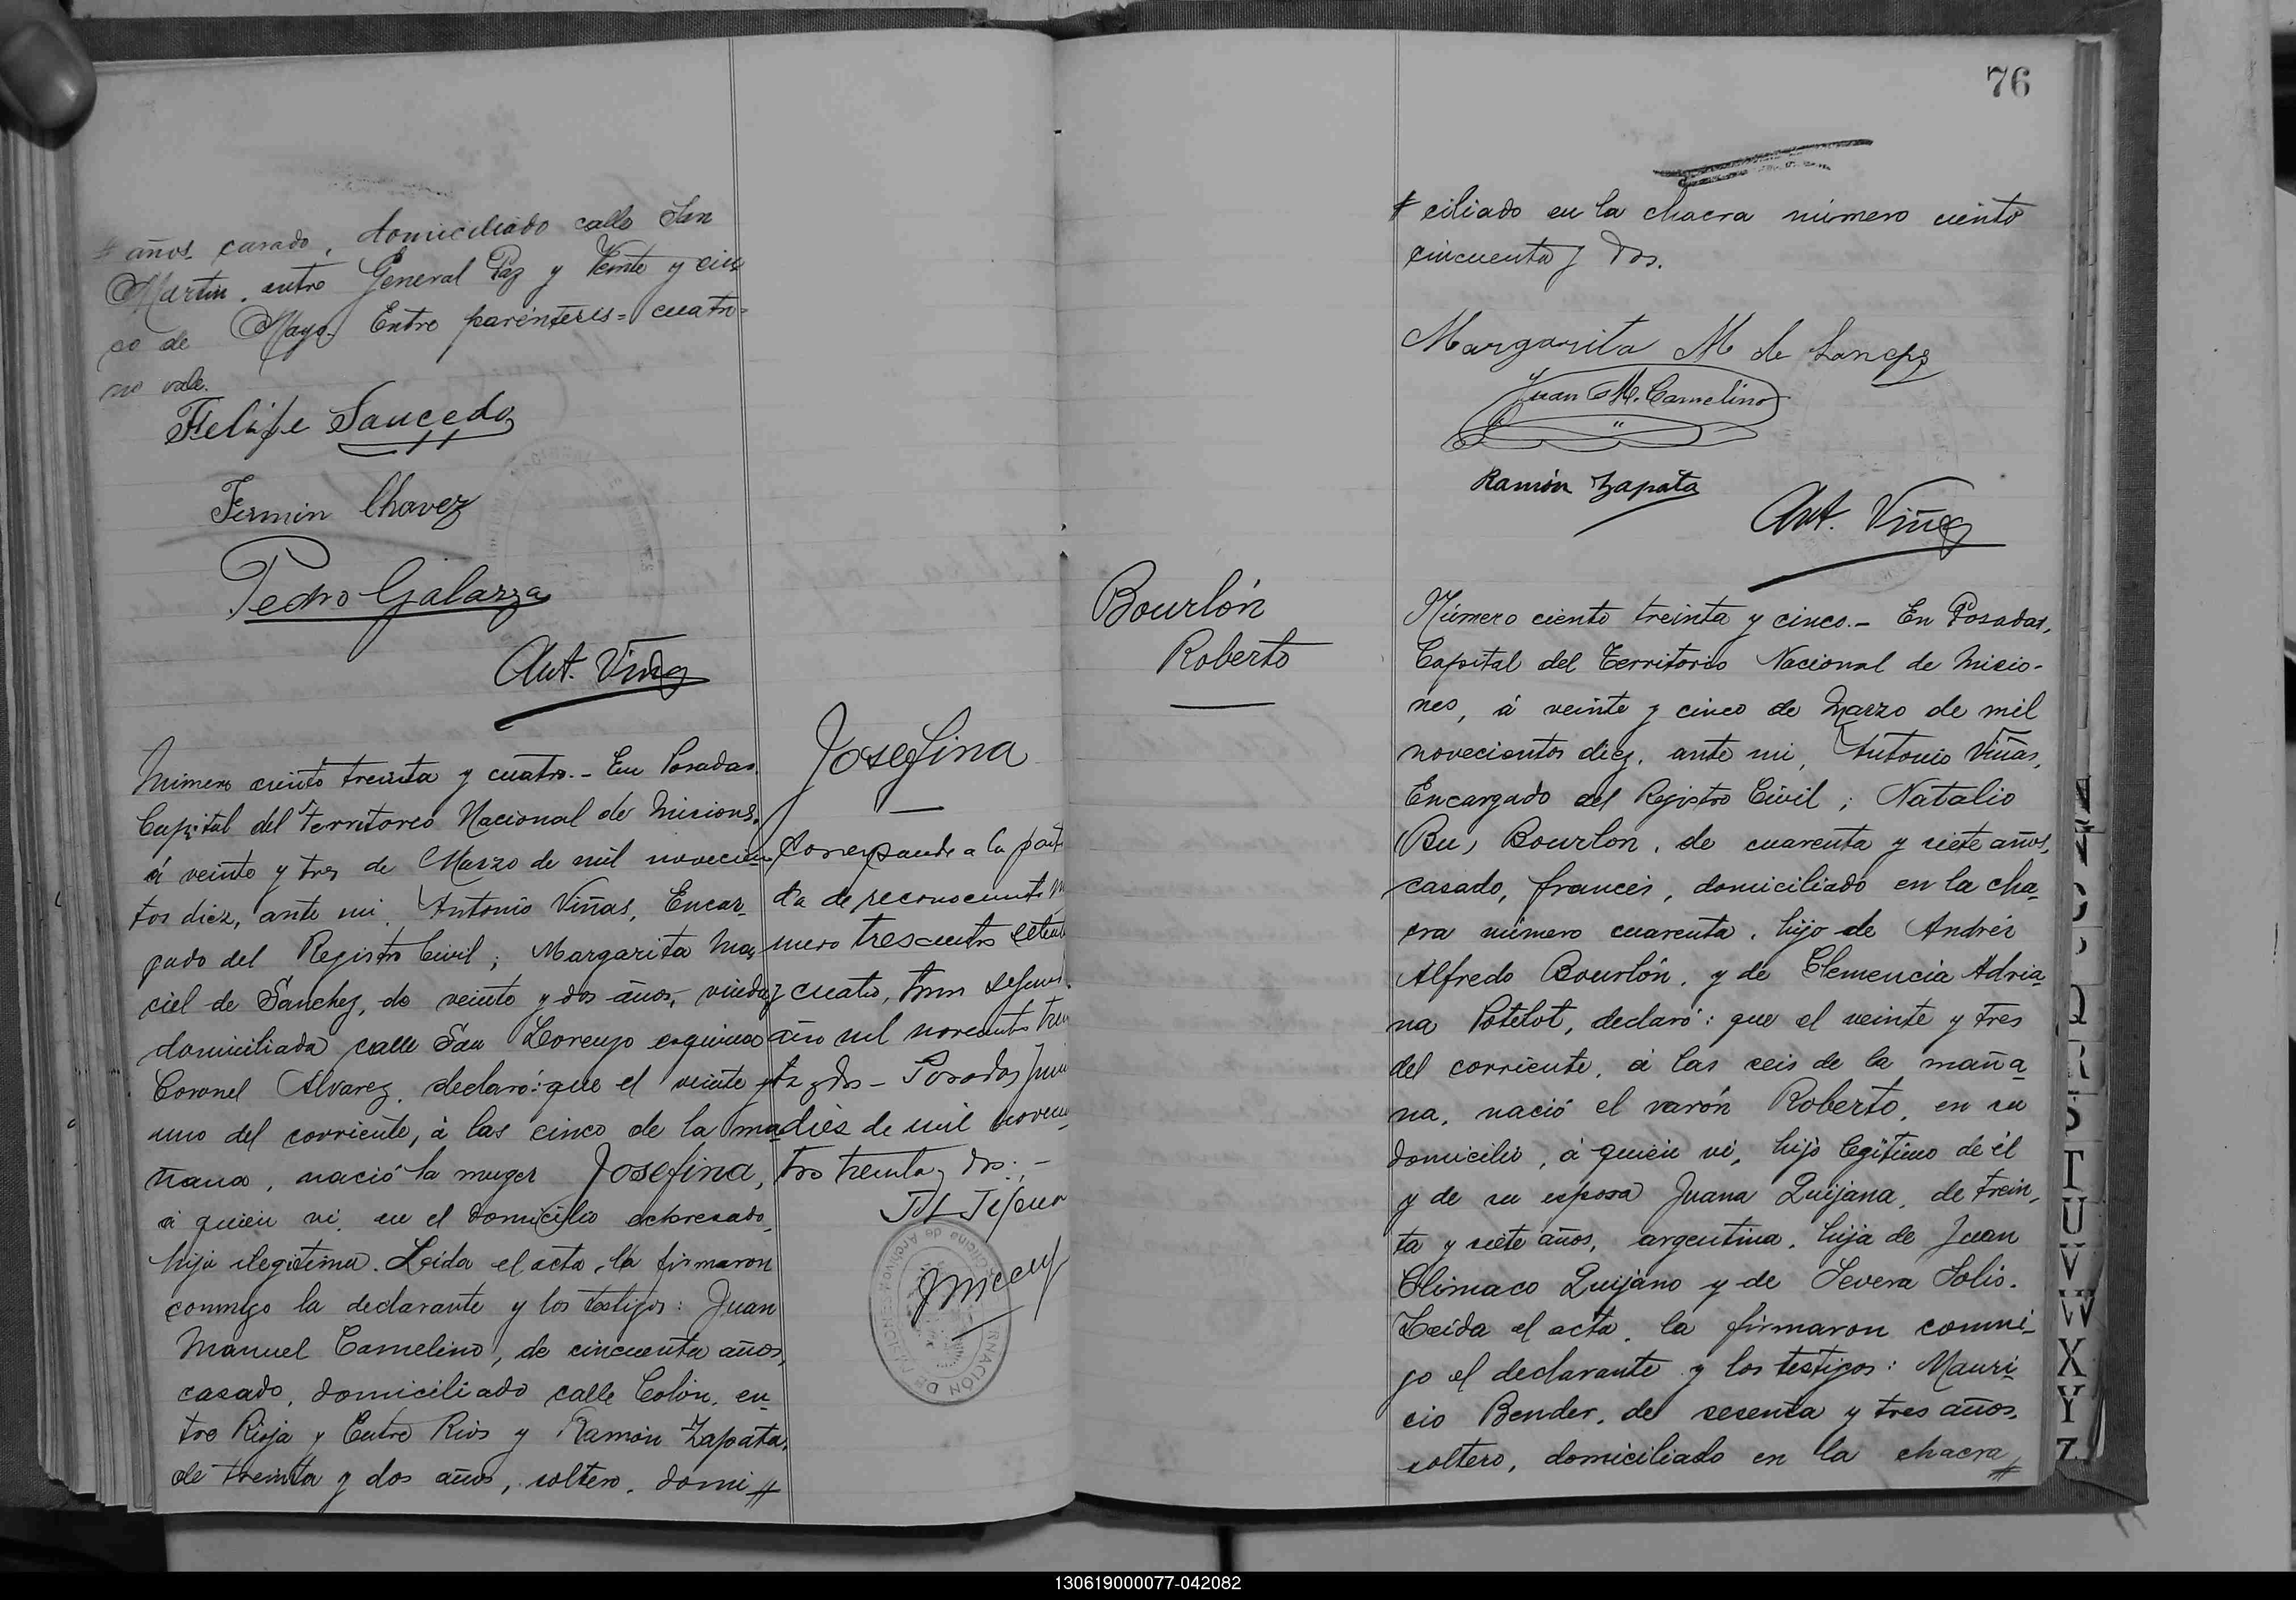 # años, casado, domiciliado calle San
Martin, entre General Paz y Veinte y cin
co de Mayo. Entre paréntesis = cuatro =
no vale.
Felipe Saucedo
Fermin Chavez
Pedro Galarza
Ant. Viñas
Número ciento treinta y cuatro.- En Posadas,
Capital del Territorio Nacional de Misiones,
á veinte y tres de Marzo de mil novecien
tos diez, ante mi, Antonio Viñas, Encar-
gado del Registro Civil; Margarita Ma-
ciel de Sanchez, de veinte y dos años, viuda,
domiciliada calle San Lorenzo esquina
Coronel Alvarez, declaró: que el veinte y
uno del corriente, á las cinco de la ma
ñana, nació la muger Josefina,
á quien vi, en el domicilio expresado,
hija ilegitima. Leida el acta, la firmaron
conmigo la declarante y los testigos: Juan
Manuel Camelino, de cincuenta años,
casado, domiciliado calle Colón, en-
tre Rioja y Entre Rios y Ramón Zapata,
de treinta y dos años, soltero, domi #
Josefina
Corresponde a la parti
da de reconocimiento nu
mero trescientos setenta
y cuatro, tomo segundo,
año mil novecientos trein
ta y dos - Posadas Junio
diez de mil novecien
tos treinta y dos.-
OFICINA de Archivo
GOBERNACIÓN DE MISIONES
76
# ciliado en la chacra número ciento
cincuenta y dos.
Margarita M de Sanchez
Juan M. Camelino
Ramón Zapata
Ant. Viñas
Bourlón
Roberto
Número ciento treinta y cinco.- En Posadas,
Capital del Territorio Nacional de Misio-
nes, á veinte y cinco de Marzo de mil
novecientos diez, ante mi, Antonio Viñas,
Encargado del Registro Civil; Natalio
(Bu) Bourlon, de cuarenta y siete años,
casado, francés, domiciliado en la cha-
cra número cuarenta, hijo de Andrés
Alfredo Bourlón, y de Clemencia Adria-
na Potelot, declaró: que el veinte y tres
del corriente, á las seis de la maña-
na, nació el varón Roberto, en su
domicilio, á quien vi, hijo legitimo de él
y de su esposa Juana Quijana, de trein-
ta y siete años, argentina, hija de Juan
Climaco Quijano y de Severa Solis.
Leida el acta, la firmaron conmi-
go el declarante y los testigos: Mauri-
cio Bender, de sesenta y tres años,
soltero, domiciliado en la chacra #
Q
R
S
T
U
V
W
X
Y
Z
130619000077-042082